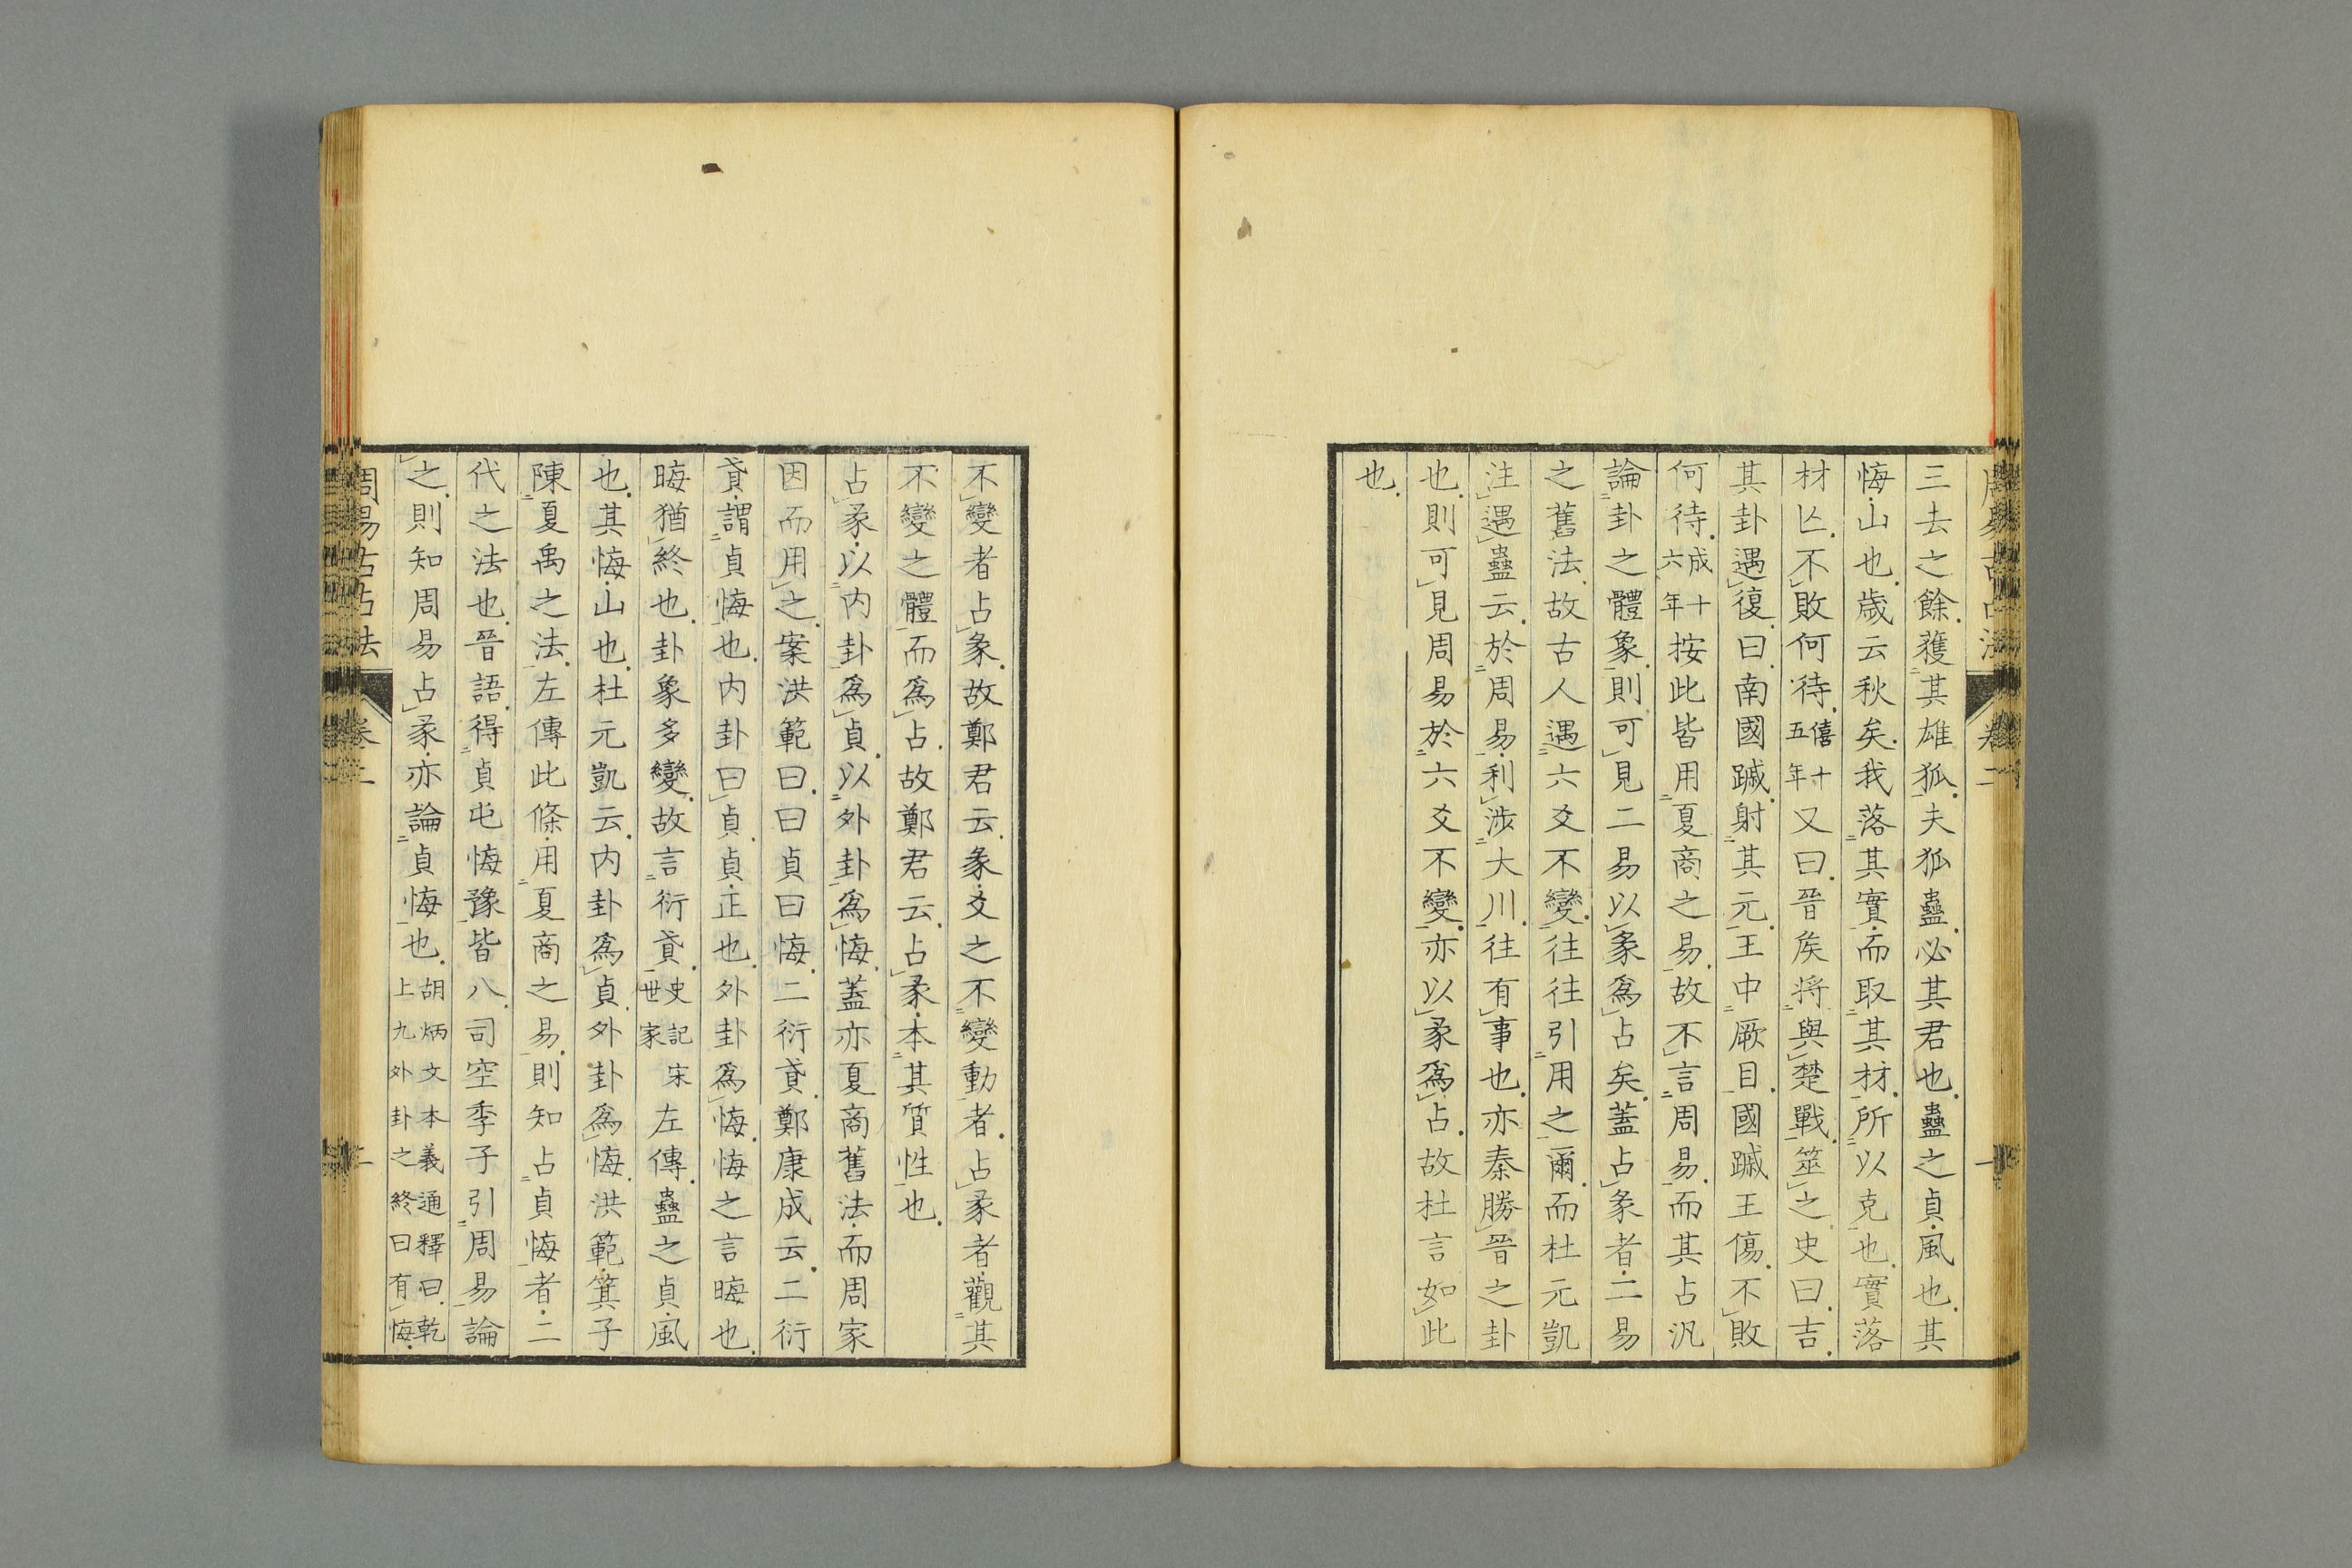 三去之餘獲其雄狐夫狐蠱必其君也蠱之貞風也其
悔山也歳云秋矣我落其實而取其材所以克也實落
材亾不敗何待僖十五年又曰晉矦將與楚戰筮之史曰吉
其卦遇復曰南國䠞射其元王中厥目國䠞王傷不敗
何待成十六年按此皆用夏商之易故不言周易而其占汎
論卦之體象則可見二易以彖爲占矣蓋占彖者二易
之舊法故古人遇六爻不變往往引用之爾而杜元凱
注遇蠱云於周易利涉大川往有事也亦秦勝晉之卦
也則可見周易於六爻不變亦以彖爲占故杜言如此
也
不變者占彖故鄭君云彖爻之不變動者占彖者觀其
不變之體而爲占故鄭君云占彖本其質性也
占彖以内卦爲貞以外卦爲悔蓋亦夏商舊法而周家
因而用之案洪範曰曰貞曰悔二衍貣鄭康成云二衍
貣謂貞悔也内卦曰貞貞正也外卦爲悔悔之言晦也
晦猶終也卦象多變故言衍貣史記宋世家左傳蠱之貞風
也其悔山也杜元凱云内卦爲貞外卦爲悔洪範箕子
陳夏禹之法左傳此條用夏商之易則知占貞悔者二
代之法也晉語得貞屯悔豫皆八司空季子引周易論
之則知周易占彖亦論貞悔也胡炳文本義通釋曰乾上九外卦之終曰有悔
周易古占法 卷二 二